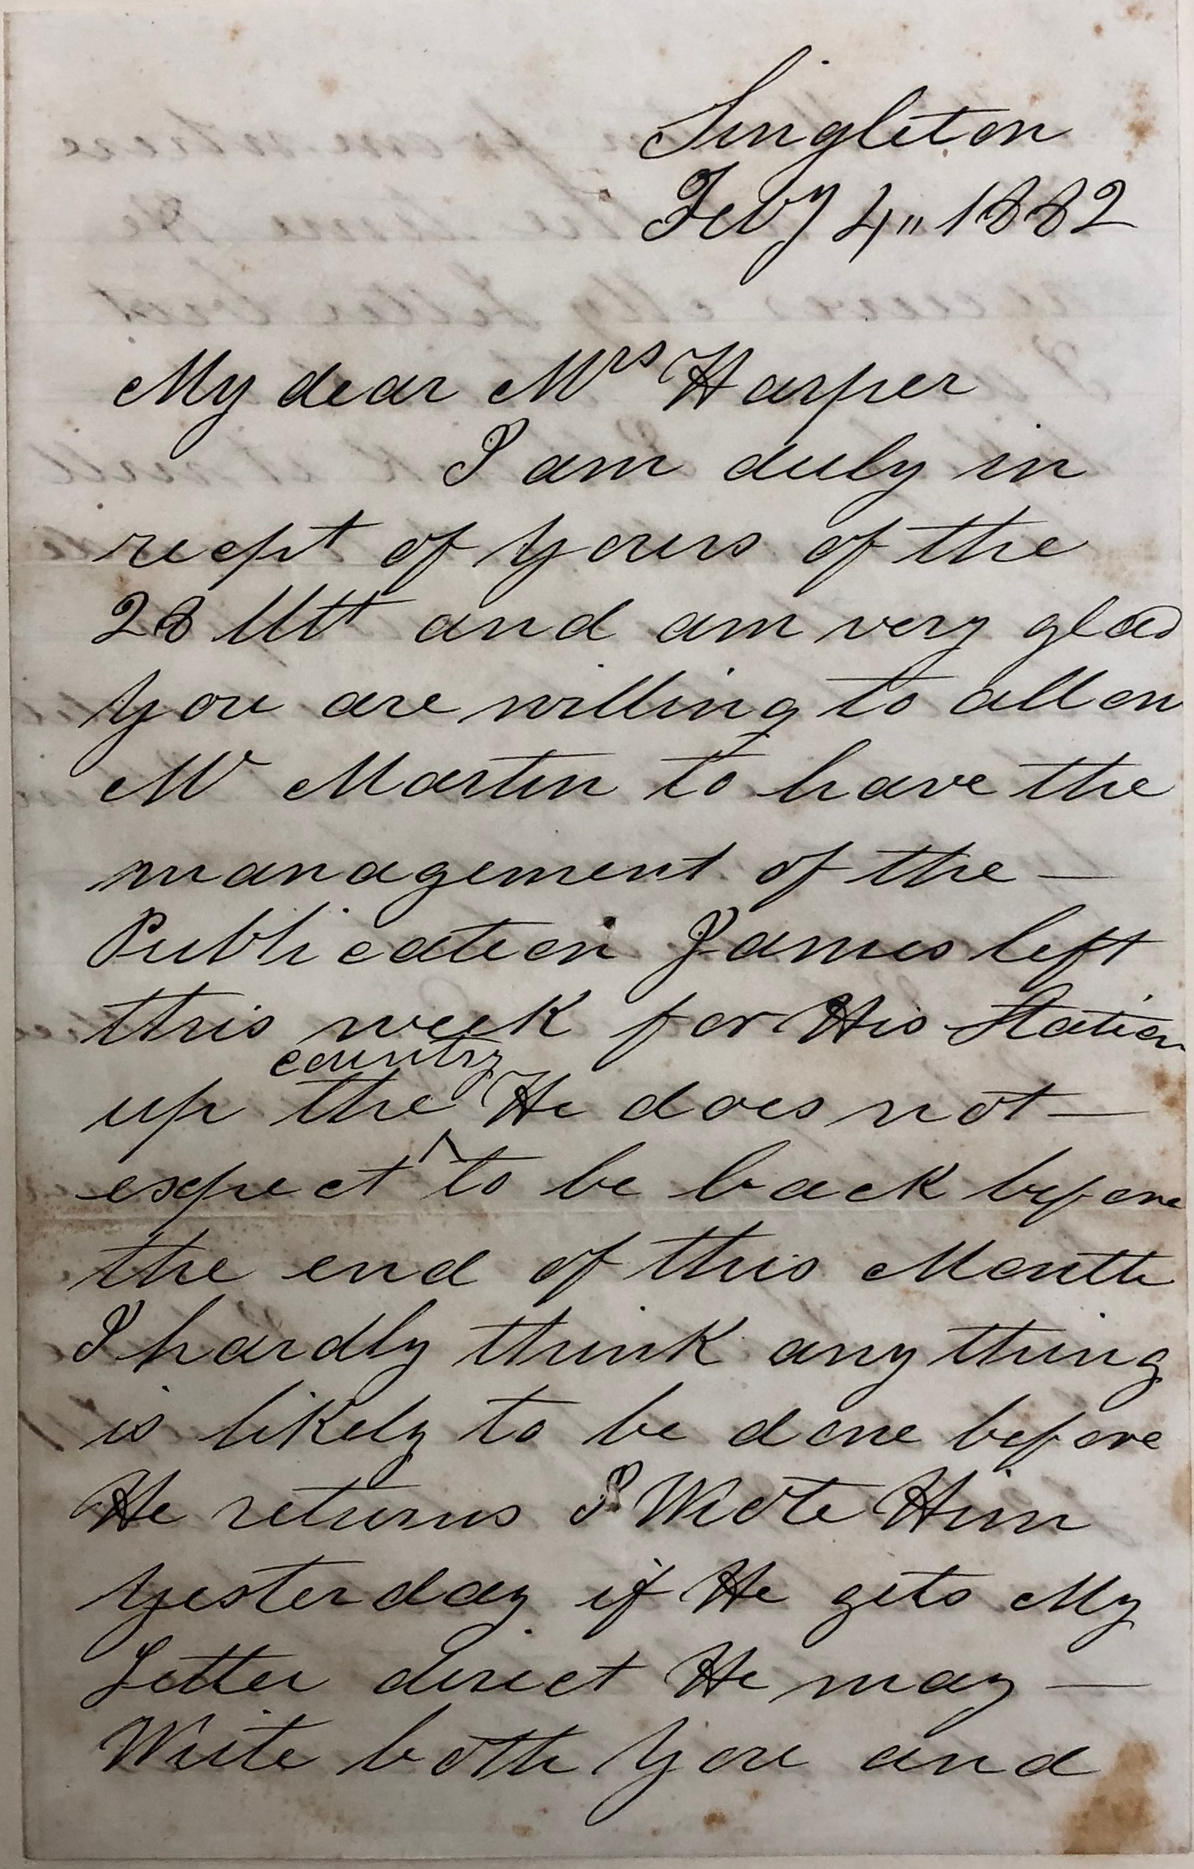 Singleton
Feby 4,, 1882
My dear Mrs Harper
I am duly in
recpt of yours of the
28 Ultt and am very glad
you are willing to allow
Mr Martin to have the
management of the —
Publication James left
this week for His Station
country
up the ^ He does not —
expect to be back before
the end of this Month
I hardly think any thing
is likely to be done before
He returns I Wrote Him
Yesterday if He gets My
Letter direct He may —
Write both You and